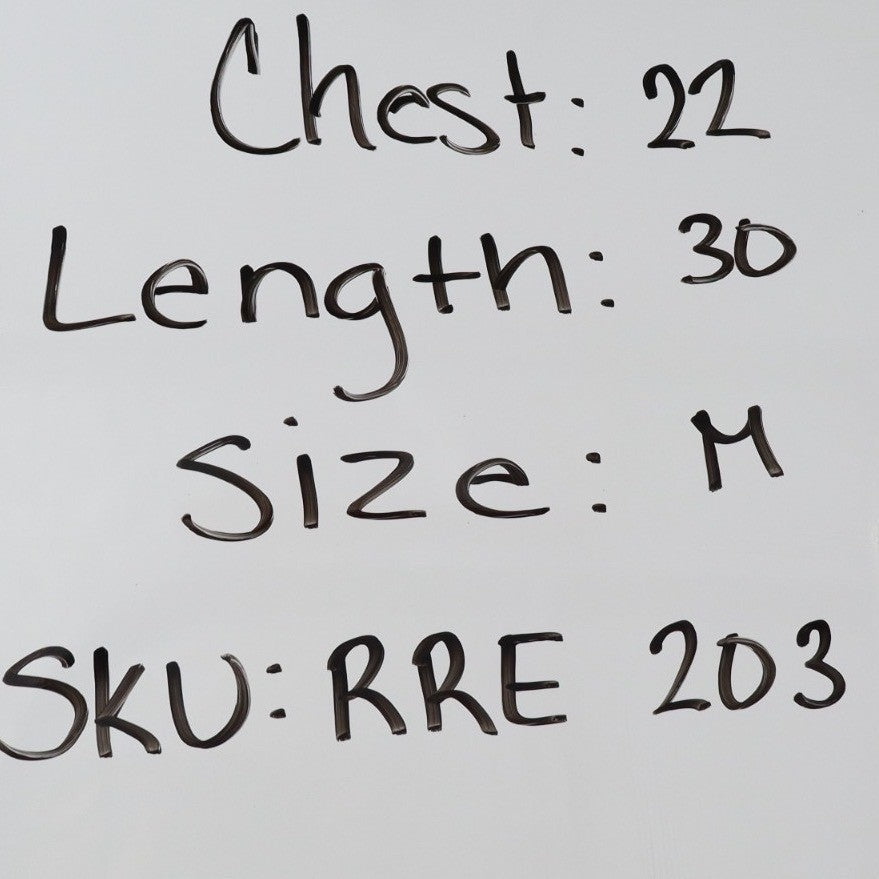 Chest: 22
Length: 30
Size: M
SKU: RRE 203